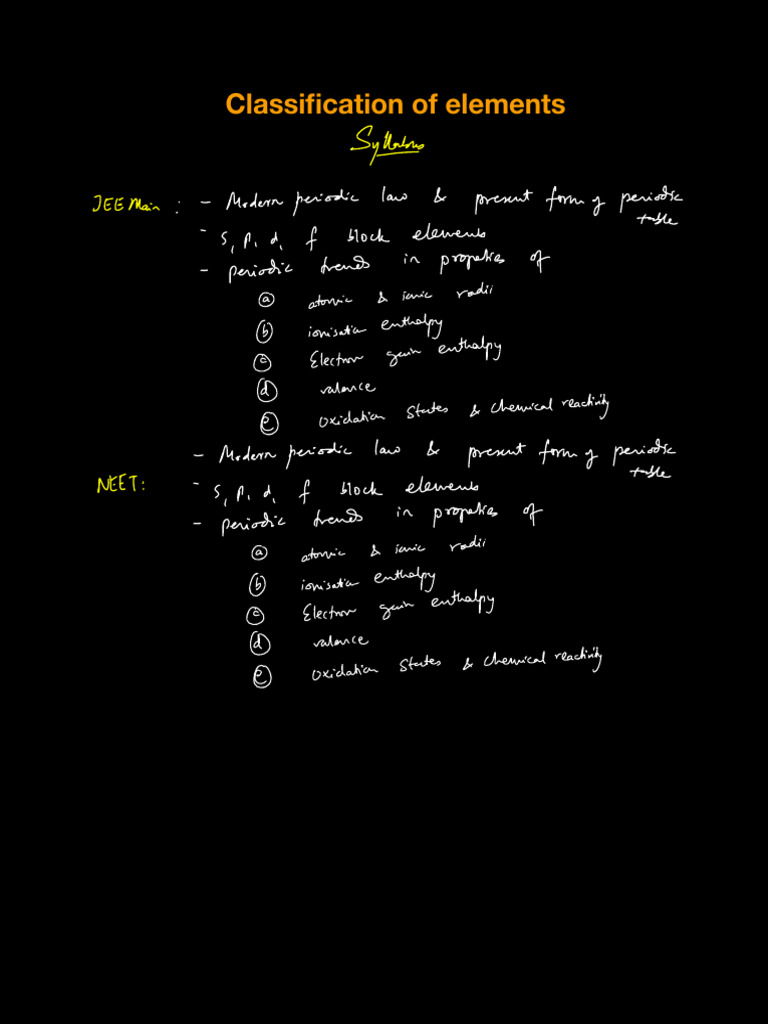 Classification of elements
Syllabus
JEE Main : - Modern periodic law & present form of periodic
table
- s, p, d, f block elements
- periodic trends in properties of
(a) atomic & ionic radii
(b) ionisation enthalpy
(c) Electron gain enthalpy
(d) valance
(e) Oxidation States & Chemical reactivity
- Modern periodic law & present form of periodic
table
NEET: - s, p, d, f block elements
- periodic trends in properties of
(a) atomic & ionic radii
(b) ionisation enthalpy
(c) Electron gain enthalpy
(d) valance
(e) Oxidation States & Chemical reactivity